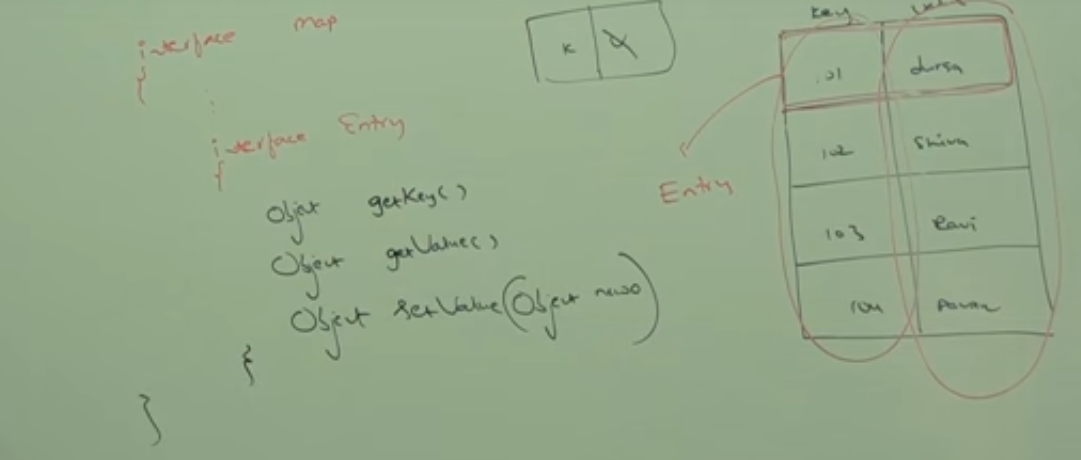 interface Map
{
:
interface Entry
{
Object getKey()
Object getValue()
Object setValue(Object newo)
}
}
K
Key
101 durga
102 Shiva
103 Ravi
104 Pavan
Entry